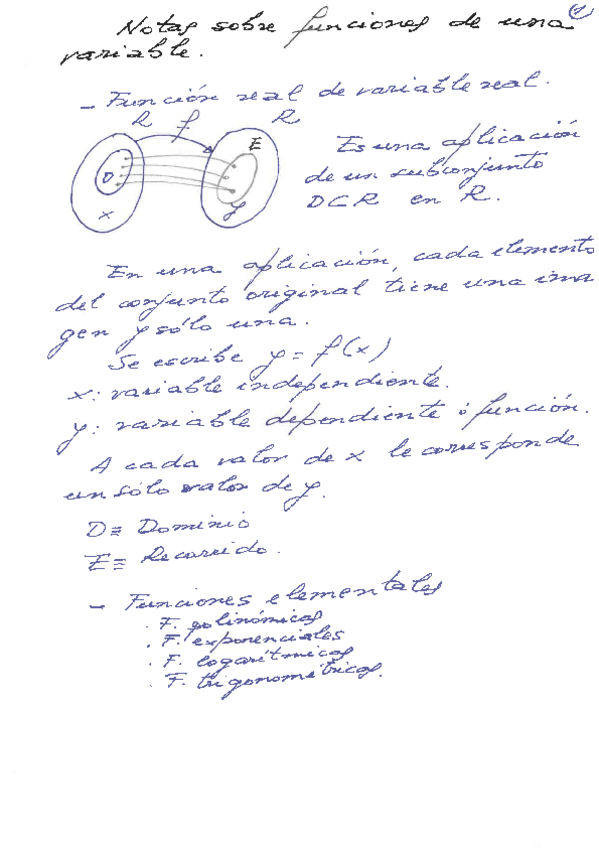 1
Notas sobre funciones de una
variable.
- Función real de variable real.
R f R
E
D
x
y
Es una aplicación
de un subconjunto
D⊂R en R.
En una aplicación, cada elemento
del conjunto original tiene una ima
gen y sólo una.
Se escribe y = f(x)
x: variable independiente.
y: variable dependiente ó función.
A cada valor de x le corresponde
un sólo valor de y.
D ≡ Dominio
E ≡ Recorrido.
- Funciones elementales
. F. polinómicas
. F. exponenciales
. F. logarítmicas
. F. trigonométricas.